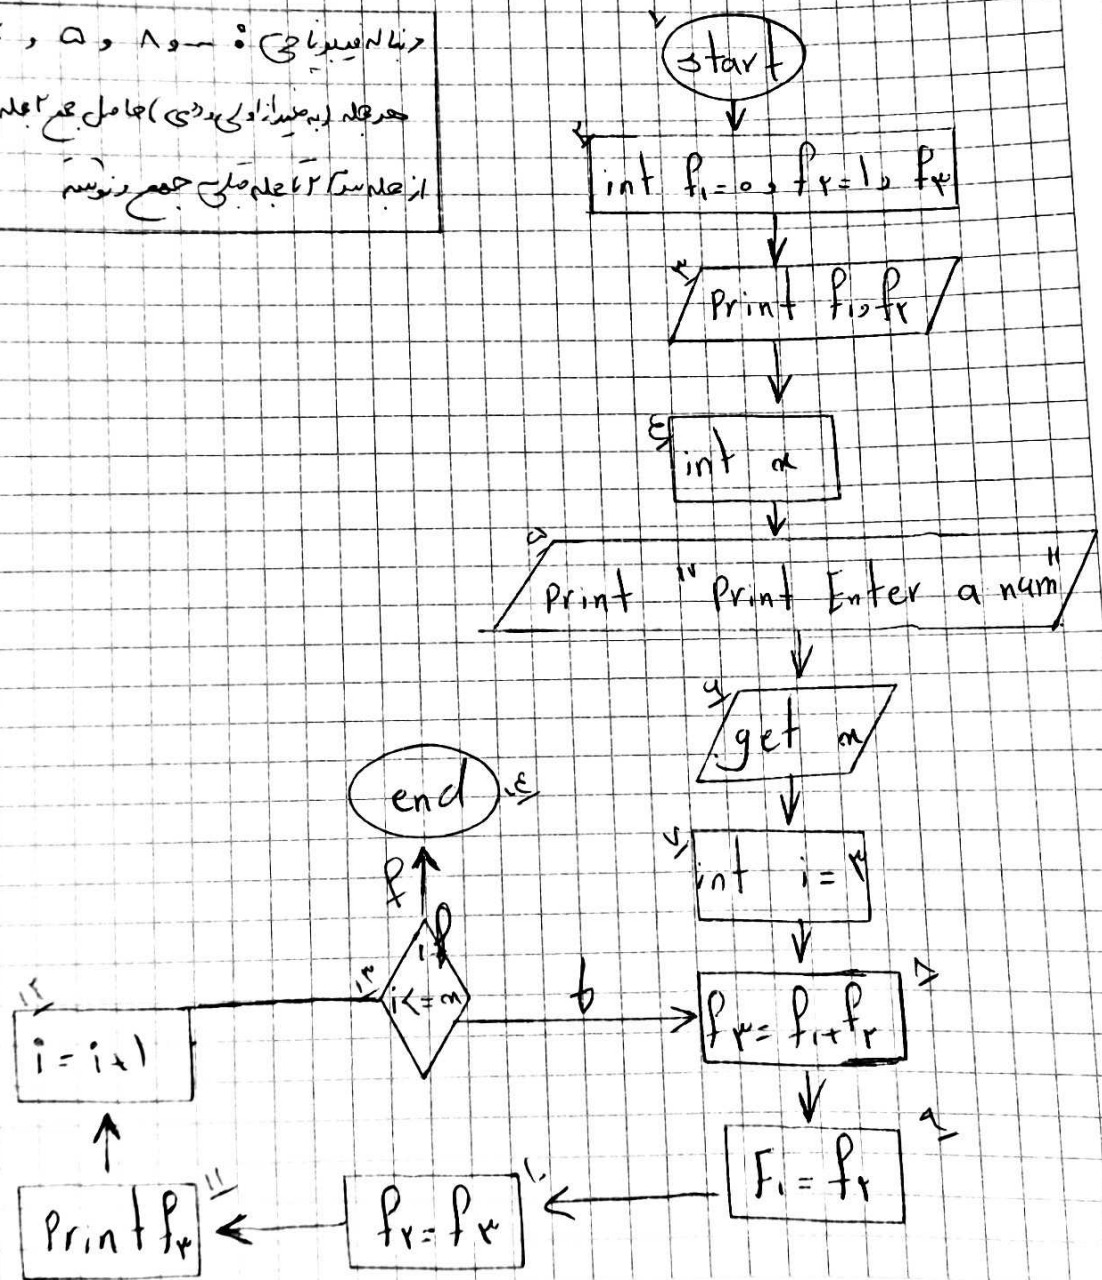 دنباله فیبوناچی : ... و ۸ و ۵ و
هر جمله (به غیر از اولی و دومی) حاصل جمع ۲ جمله
از جمله ۲ تا جمله قبلی جمع
۱
start
۲
int f۱=۰, f۲=1, f۳
۳
print f۱, f۲
٤
int x
۵
print "print Enter a num"
۶
get x
۷
int i=۳
۸
f۳= f۱+f۲
۹
F۱ = f۲
۱۰
f۲=f۳
۱۱
print f۳
۱۲
i = i+1
۱۳
if
i<=x
t
f
end
۱٤